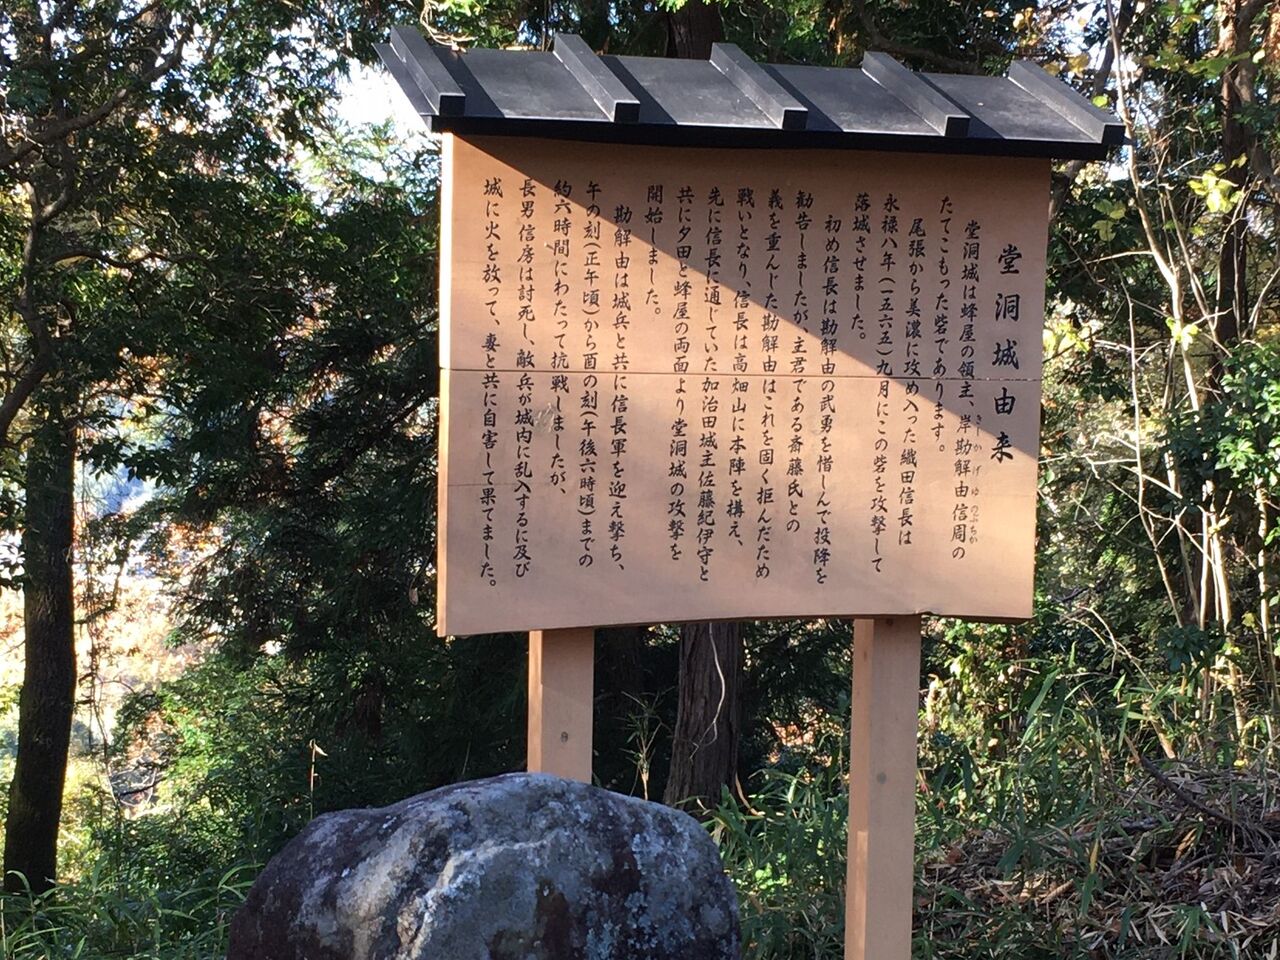 堂洞城由来
堂洞城は蜂屋の領主、岸勘解由信周の
きしかげゆのぶちか
たてこもった砦であります。
尾張から美濃に攻め入った織田信長は
永禄八年(一五六五)九月にこの砦を攻撃して
落城させました。
初め信長は勘解由の武勇を惜しんで投降を
勧告しましたが、主君である斎藤氏との
義を重んじた勘解由はこれを固く拒んだため
戦いとなり、信長は高畑山に本陣を構え、
先に信長に通じていた加治田城主佐藤紀伊守と
共に夕田と蜂屋の両面より堂洞城の攻撃を
開始しました。
勘解由は城兵と共に信長軍を迎え撃ち、
午の刻(正午頃)から酉の刻(午後六時頃)までの
約六時間にわたって抗戦しましたが、
長男信房は討死し、敵兵が城内に乱入するに及び
城に火を放って、妻と共に自害して果てました。